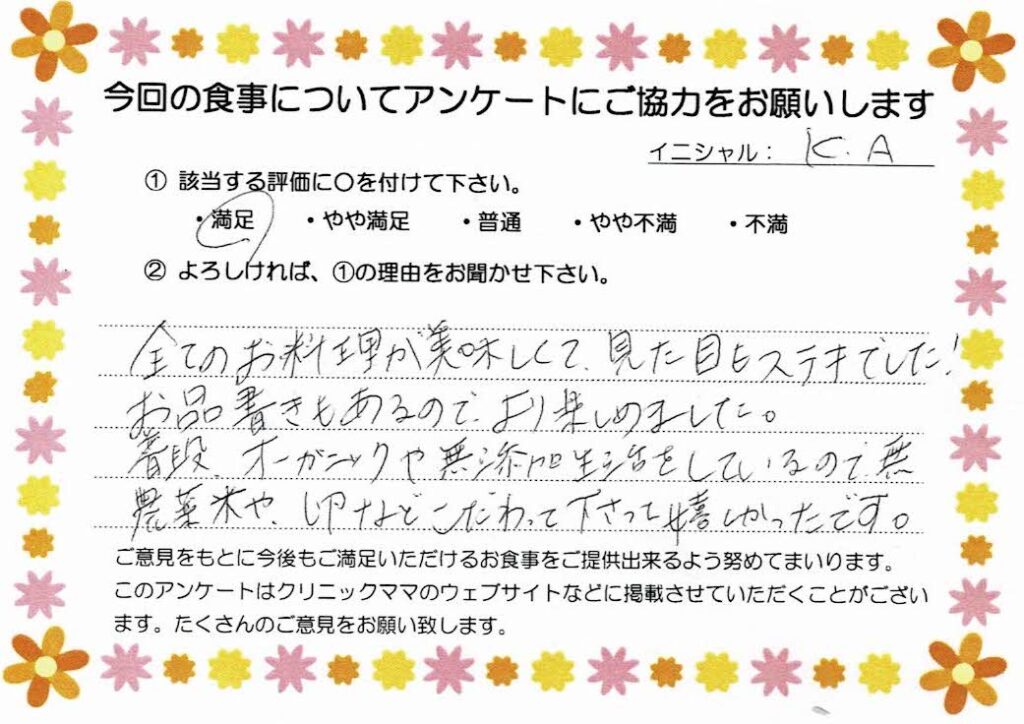 今回の食事についてアンケートにご協力をお願いします
イニシャル： K.A
① 該当する評価に〇を付けて下さい。
・満足 ・やや満足 ・普通 ・やや不満 ・不満
② よろしければ、①の理由をお聞かせ下さい。
全てのお料理が美味しくて、見た目もステキでした!
お品書きもあるので、より楽しめました。
普段、オーガニックや無添加生活をしているので、無
農薬米や、卵などこだわって下さって嬉しかったです。
ご意見をもとに今後もご満足いただけるお食事をご提供出来るよう努めてまいります。
このアンケートはクリニックママのウェブサイトなどに掲載させていただくことがござい
ます。たくさんのご意見をお願い致します。